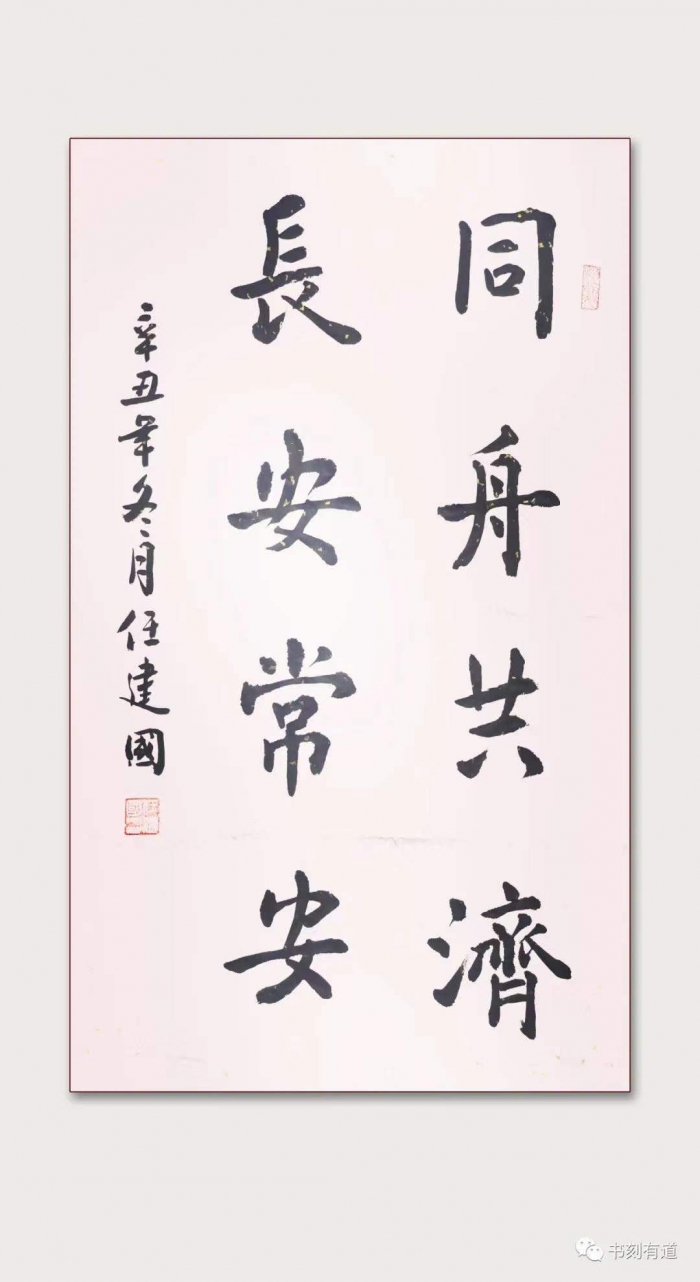 同舟共濟
長安常安
辛丑年冬月任建國
书刻有道